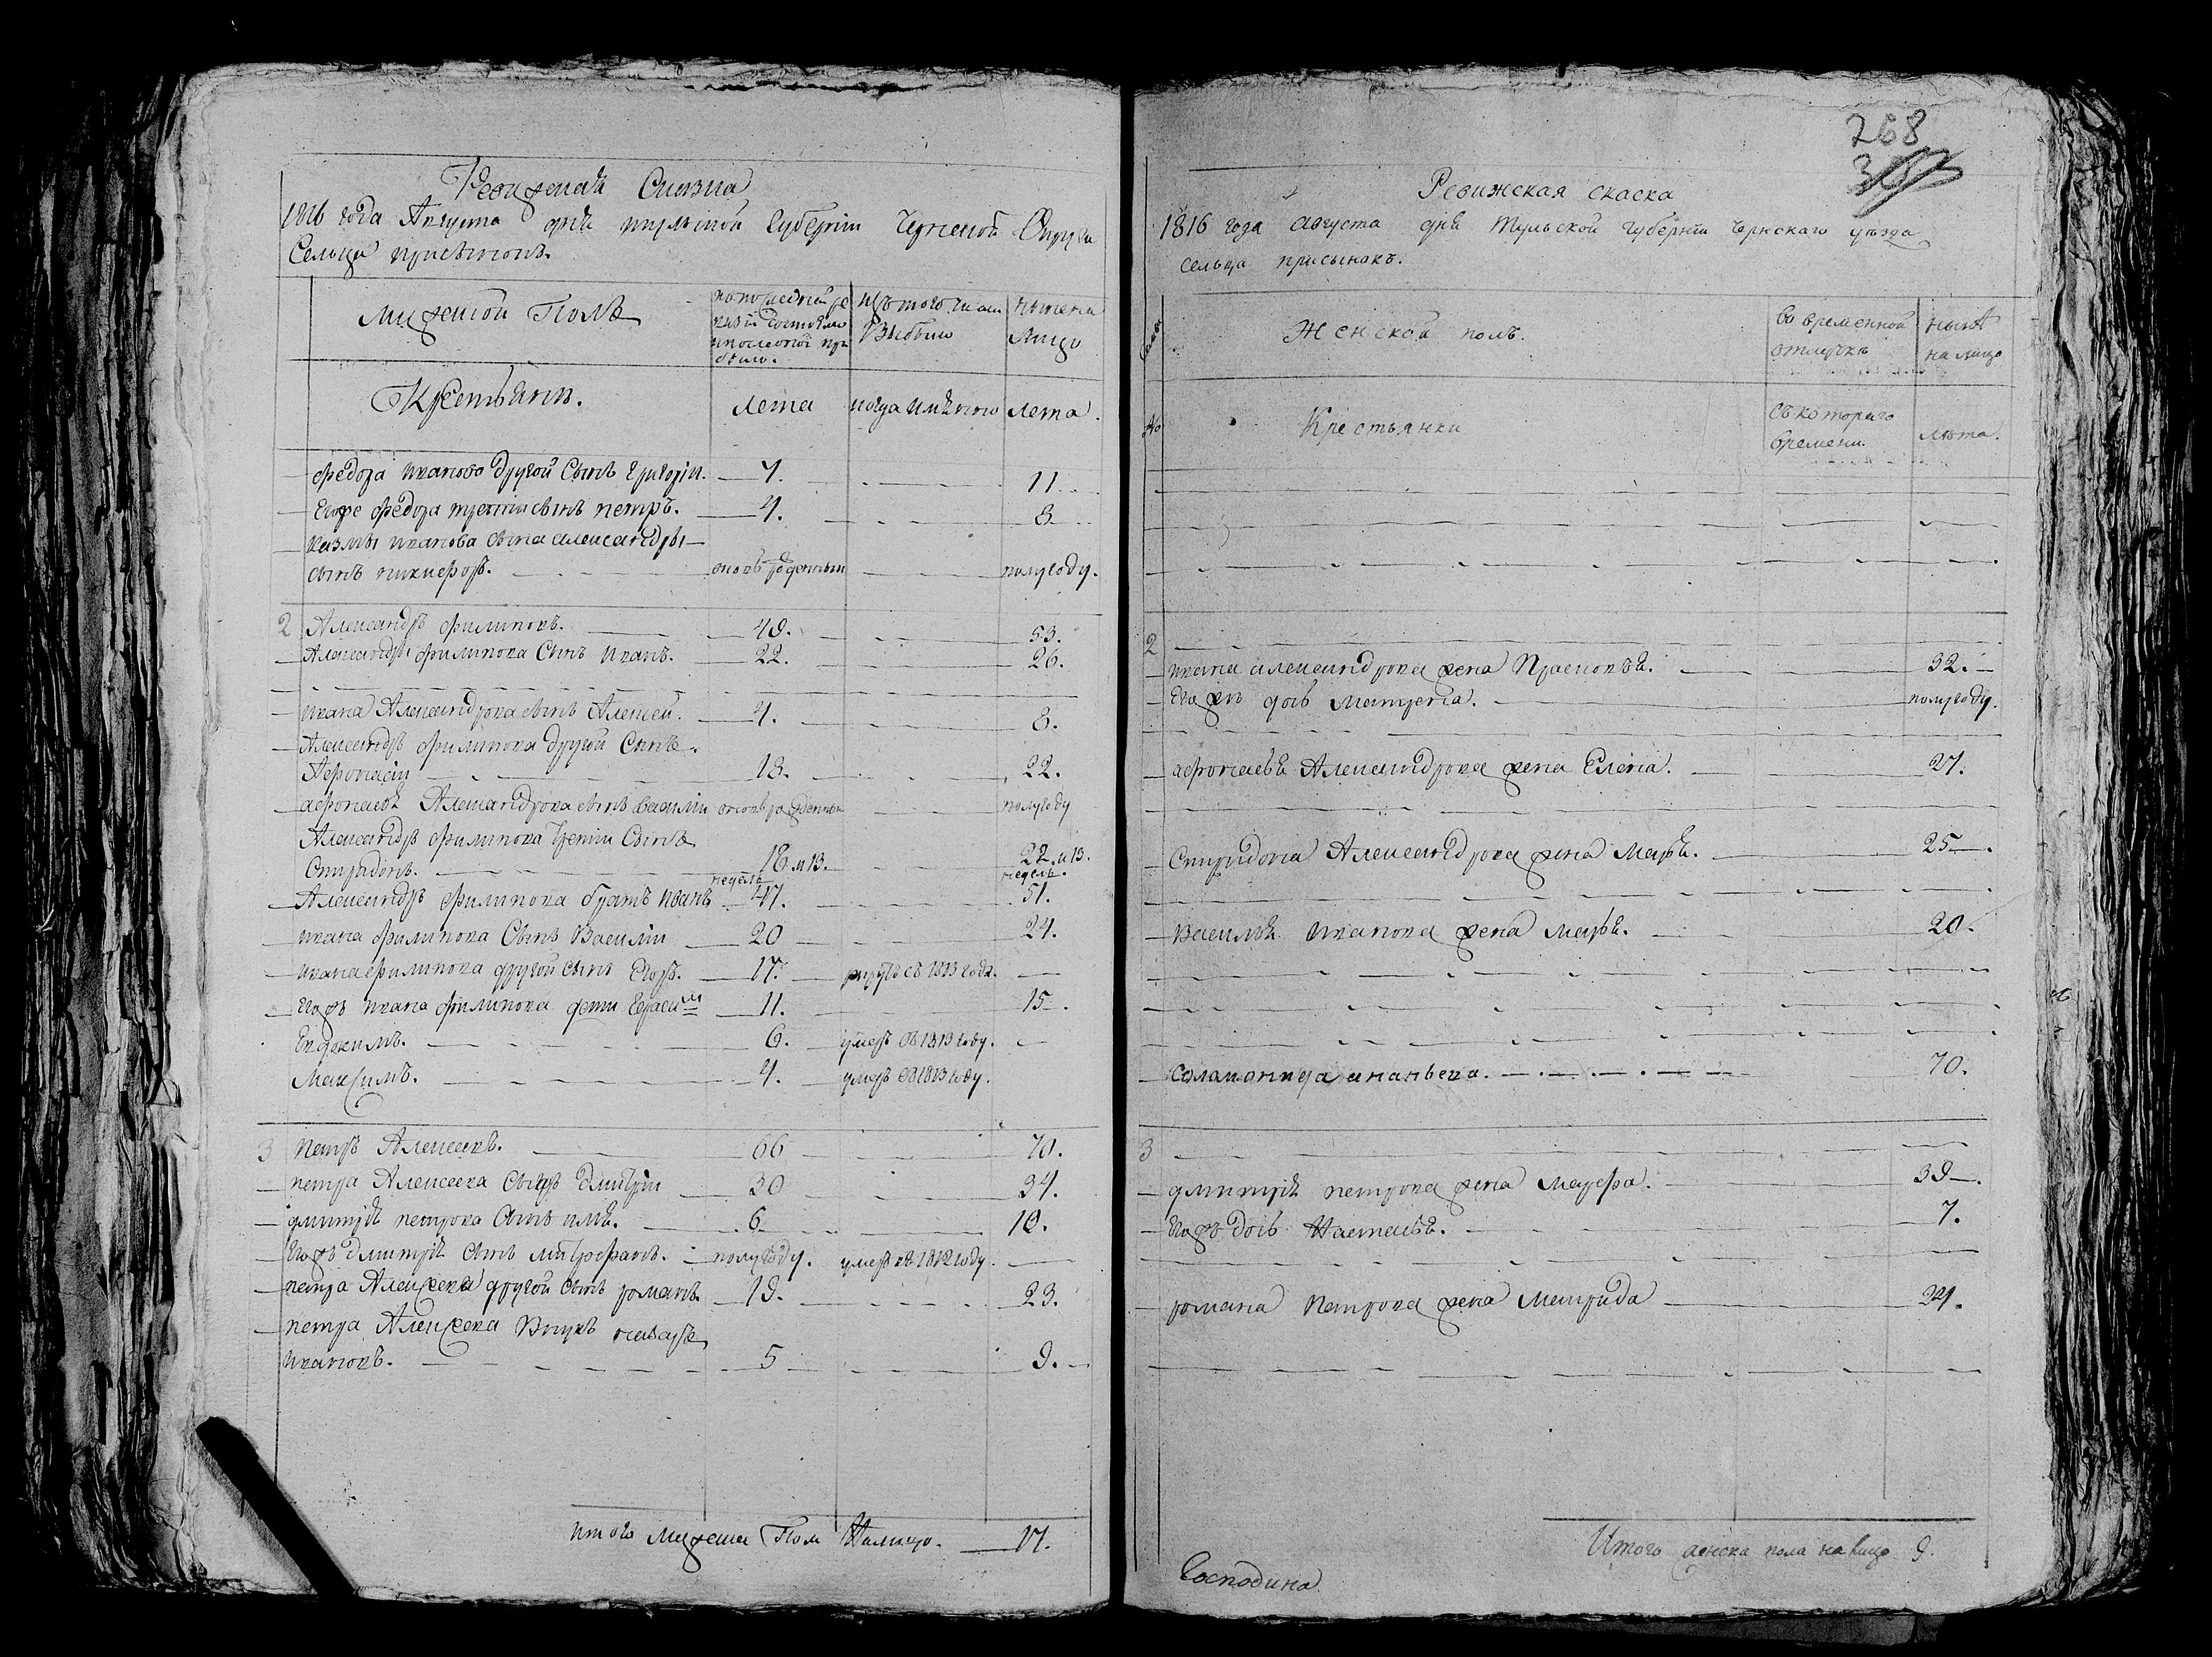 Ревижская Сказка
1816 года Августа дня тульской губернии Чернской Округи
Сельца присынокъ.
мужеской Полъ
по последней ре
визіи состояло
и после оной при
было.
изъ того числа
Выбыло
ныне на
лицо
Крестьяне.
лета
когда имянно
лета.
федора иванова другой Сынъ григорій. 7. 11
Егоже федора третій сынъ петръ. 4. 8
казмы иванова сына александры
сынъ никифоръ. вновь рожденный полугоду.
2 Александръ филиповъ. 49. 53.
Александры филипова Сынъ иванъ. 22. 26.
ивана Александрова сынъ Алексей. 4. 8.
Александръ филипова другой Сынъ.
Афонасій 18. 22.
афонасья Александрова сынъ василій вновь рожденный полугоду
Александръ филипова третій Сынъ
Спиридонъ. 18 и 13. недель 22. и 13. недель.
Александръ филипова братъ иванъ 47. 51.
ивана филипова Сынъ Василій 20 24.
ивана филипова другой сынъ Егоръ. 17. рекрутъ съ 1813 года.
Егожъ ивана филипова дети Герасимъ 11. 15.
Евдокимъ. 6. умеръ въ 1813 году.
Максимъ. 4. умеръ въ 1813 году.
3 петръ Алексеевъ. 66 70.
петра Алексеева Сынъ дмитрій 30 34.
дмитрія петрова сынъ 6 10.
Егожъ дмитрія сынъ митрофанъ. полугоду. умеръ въ 1812 году.
петра Алексеева другой сынъ романъ. 19. 23.
петра Алексеева Внукъ назаръ
ивановъ. 5 9.
итого мужеска Пола Налицо. 17.
268
Ревижская скаска
1816 года августа дня Тульской губерніи чернскаго уезда
сельца присынокъ.
Женской полъ.
во временной
отлучке
ныне
на лицо
№
Крестьянки
съ котораго
времени.
лета.
2
ивана александрова жена Прасковья. 32.
Егожъ дочь матрена. полугоду.
афонасья Александрова жена Елена. 27.
Спиридона Александрова жена марья. 25.
Василья иванова жена марья. 20.
Соламанида ананьева. 70.
3
дмитрія петрова жена марфа. 39.
Егожъ дочь Настасья. 7.
романа петрова жена 24.
Итого женска пола на лицо 9.
Господина